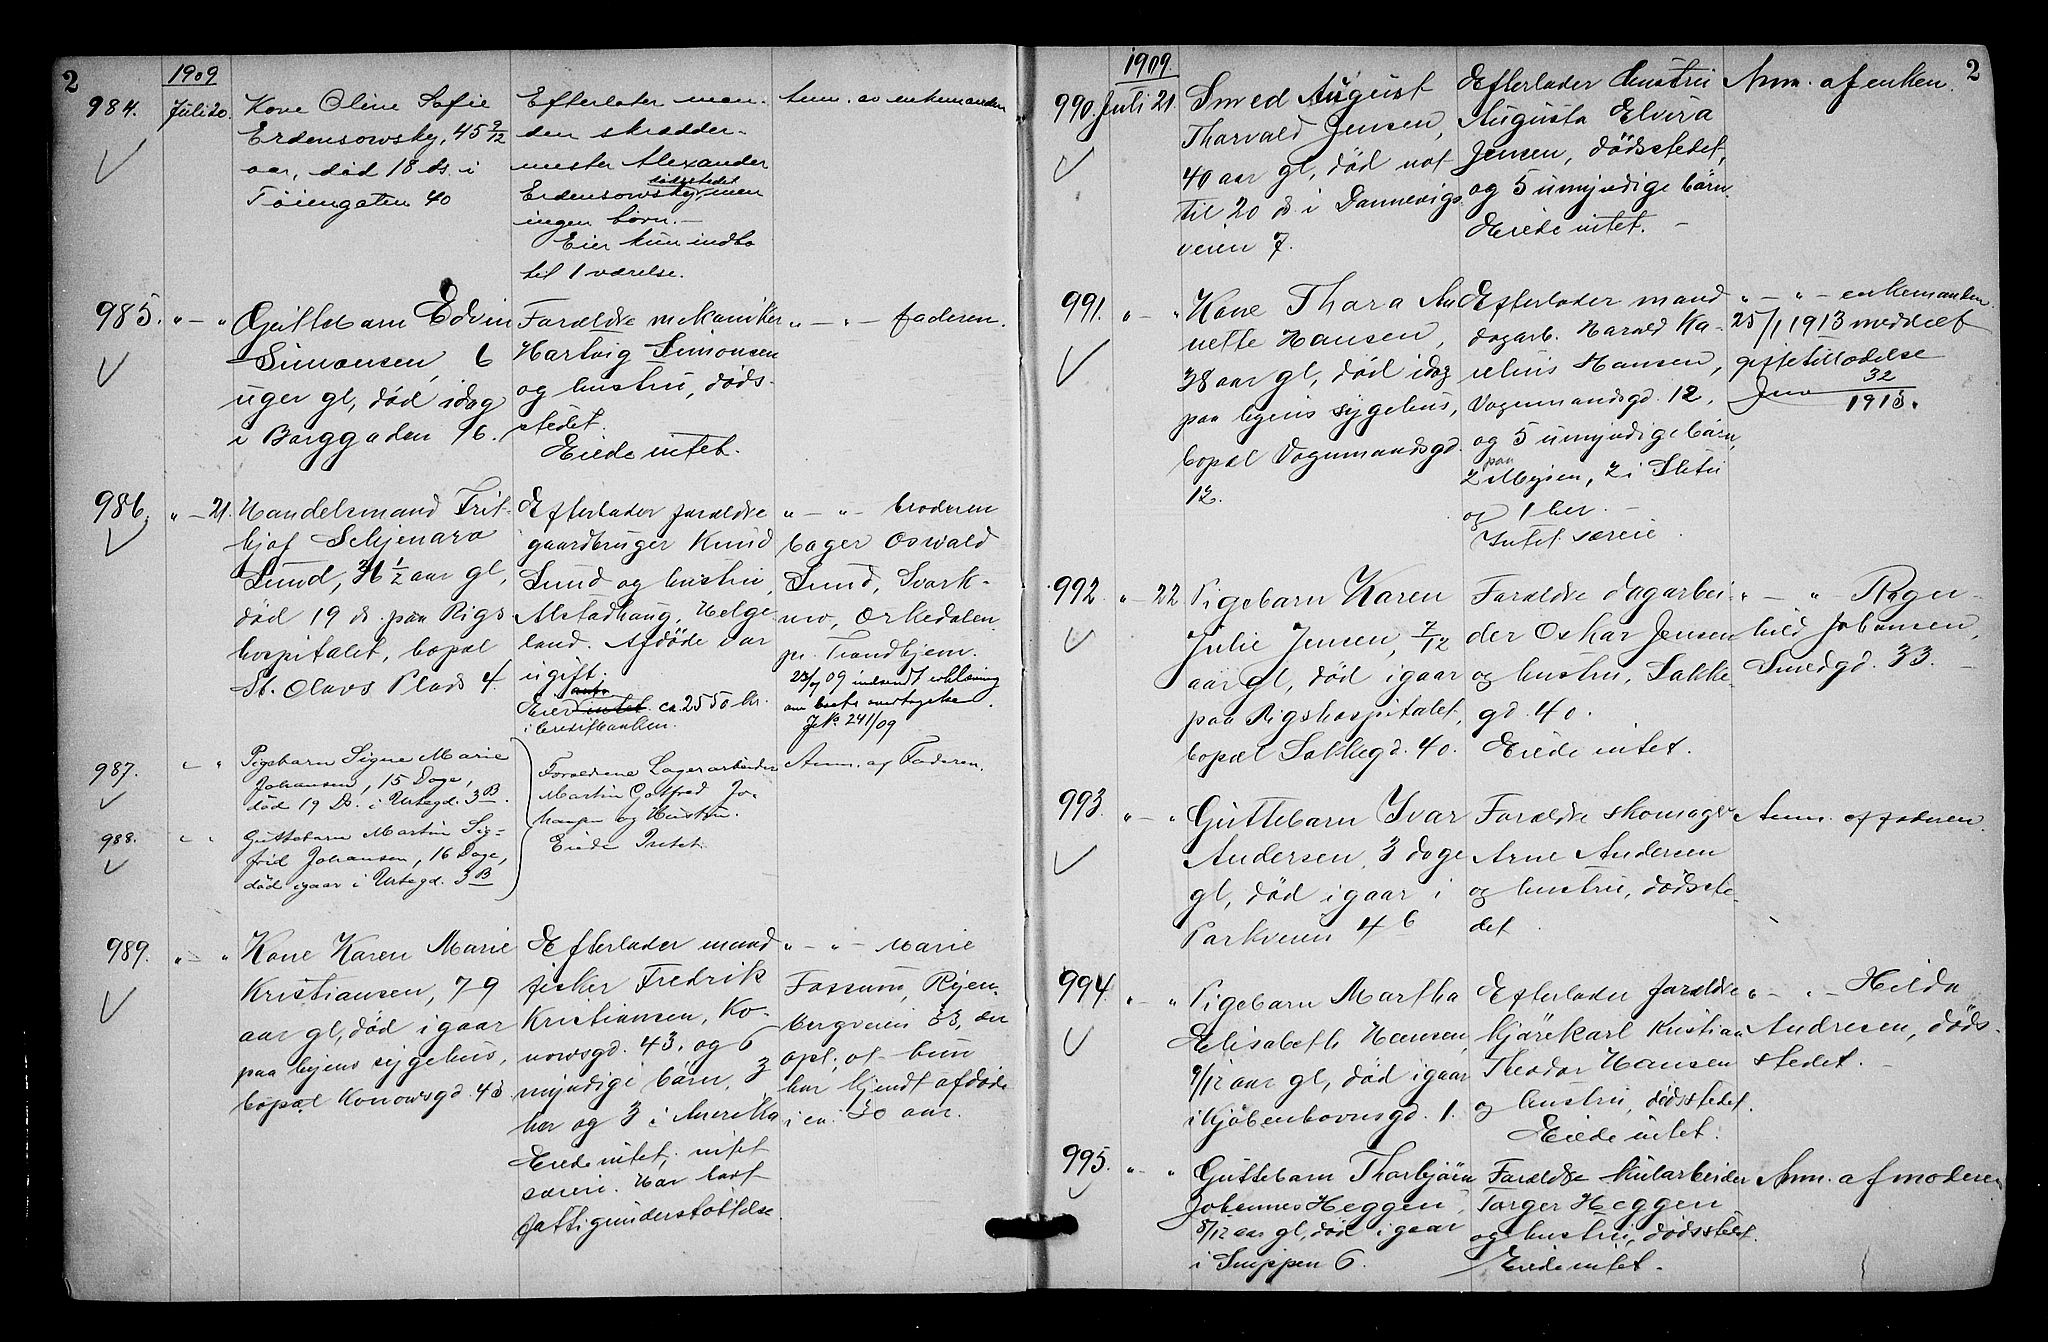 2
1909
984. Juli 20. Kone Oline Sofie
Erdensowsky, 45 9/12
aar, död 18 ds. i
Töiengaten 40
Efterlater man-
den skrædder-
mester Alexander
dödsstedet
Erdensowsky, men
ingen børn.-
Eier kun indbo
til 1 værelse.
Anm. av enkemanden
985. " - " Guttebarn Edvin
Simonsen, 6
uger gl, död idag
i Borggaden 16.
Forældre mekaniker
Hartvig Simonsen
og hustru, döds-
stedet.
Eiede intet.
" - " - faderen.
986. " - 21. Handelsmand Frit-
hjof Schjenarø
Sund, 31 1/2 aar gl,
död 19 ds. paa Rigs
hospitalet, bopæl
St. Olavs Plads 4.
Efterlader forældre
gaardbruger Knud
Sund og hustru,
Alstadhaug, Helge
land. Afdöde var
ugift.
Eier intet ca. 2550 kr.
i Creditbanken.
" - " - broderen
bager Oswald
Sund, Svark-
mo, Orkedalen
pr. Trondhjem.
23/7 09 indsendt erklæring
om boets overtagelse.
J.No 241/09
987. " " Pigebarn Signe Marie
Johansen, 15 Dage,
död 19 Ds. i Urtegd. 3B.
Forældrene Lagerarbeider
Martin Gotfred Jo-
hansen og Hustru.
Eiede Intet.
Anm. af Faderen.
988. " " Guttebarn Martin Sig-
frid Johansen, 16 Dage,
död igaar i Urtegd. 3B
989. " - " Kone Karen Marie
Kristiansen, 79
aar gl, död igaar
paa byens sygehus,
bopæl Konowsgd. 43
Efterlader mand
fisker Fredrik
Kristiansen, Ko-
nowsgd. 43, og 6
myndige børn, 3
her og 3 i Amerika
Eiede intet, intet
særeie. Har havt
fattigunderstöttelse.
" - " - Marie
Fossum, Ryen-
bergveien 33, der
opl. at hun
har kjendt afdöde
i ca. 30 aar.
2
1909.
990. Juli 21. Smed August
Thorvald Jensen,
40 aar gl, död nat
til 20 ds. i Dannevigs
veien 7.
Efterlader hustru
Augusta Elvira
Jensen, dödsstedet,
og 5 umyndige børn.
Eiede intet. -
Anm. af enken.
991. " - " Kone Thora An
nette Hansen,
38 aar gl, död idag
paa byens sygehus,
bopæl Vognmandsgd.
12.
Efterlader mand
dagarb. Harald Ka-
relius Hansen,
Vognmandsgd. 12,
og 5 umyndige børn,
paa
2 Mysen, 2 i Sletu
og 1 her. -
Intet særeie.
" - " - enkemanden.
25/1 1913 meddelt
giftetilladelse
Jno 32
1913.
992. " - 22 Pigebarn Karen
Julie Jensen, 7/12
aar gl, död igaar
paa Rigshospitalet,
bopæl Lakkegd. 40.
Forældre dagarbei-
der Oskar Jensen
og hustru, Lakke-
gd. 40.
Eiede intet.
" - " - Ragn-
hild Johansen,
Smedgd. 33. -
993. " - " Guttebarn Ivar
Andersen, 3 dage
gl, död igaar i
Parkveien 46
Forældre skomager
Arne Andersen
og hustru, dödsste-
det
Anm. af faderen.
994. " - " Pigebarn Martha
Elisabeth Hansen,
9/12 aar gl, död igaar
i Kjöbenhavnsgd. 1.
Efterlader forældre
kjörekarl Kristian
Theodor Hansen
og hustru, dödsstedet.
Eiede intet.
" - " - Hilda
Andresen, döds-
stedet. -
995. " - " Guttebarn Thorbjörn
Johannes Heggen,
8/12 aar gl, död igaar
i Snippen 6.
Forældre kularbeider
Torger Heggen
og hustru, dödsstedet.
Eiede intet.
Anm. af moderen